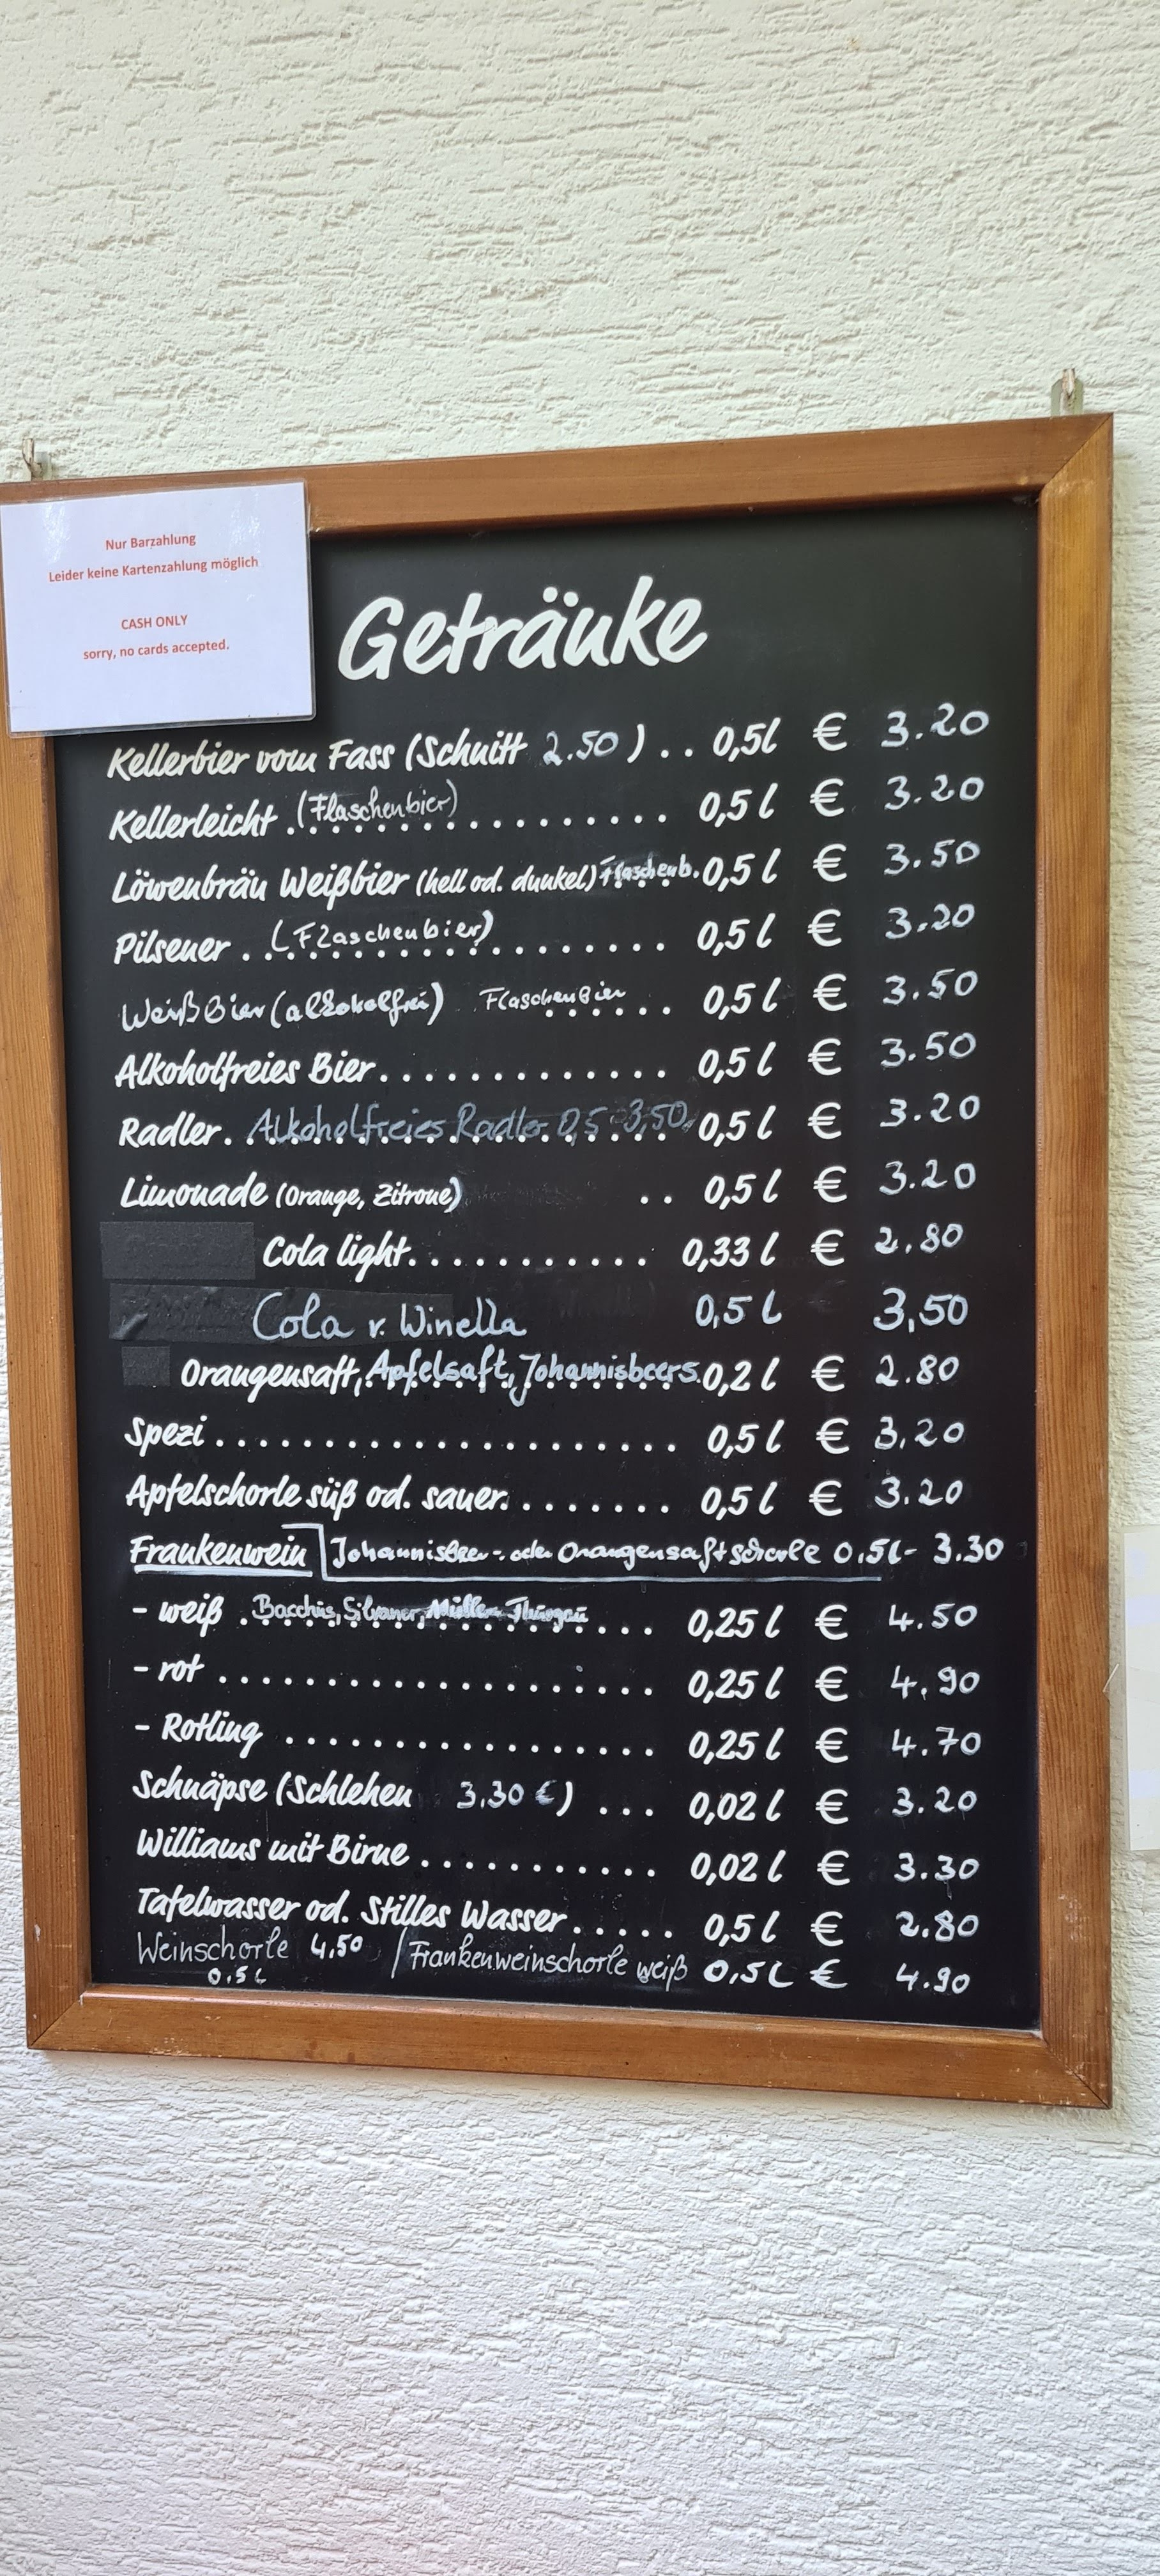 Nur Barzahlung
Leider keine Kartenzahlung möglich
CASH ONLY
sorry, no cards accepted.
Getränke
Kellerbier vom Fass (Schnitt 2.50 ) .. 0,5l € 3.20
Kellerleicht (Flaschenbier) ................ 0,5 l € 3.20
Löwenbräu Weißbier (hell od. dunkel) Flaschenb. 0,5 l € 3.50
Pilsener . (Flaschenbier) ................ 0,5 l € 3.20
Weißbier (alkoholfrei) Flaschenbier .. 0,5 l € 3.50
Alkoholfreies Bier............. 0,5 l € 3.50
Radler. Alkoholfreies Radler 0,5 3,50 0,5 l € 3.20
Limonade (Orange, Zitrone) .. 0,5 l € 3.20
Cola light........... 0,33 l € 2.80
Cola v. Winella 0,5 l 3,50
Orangensaft, Apfelsaft, Johannisbeers. 0,2 l € 2.80
Spezi ........................ 0,5 l € 3.20
Apfelschorle süß od. sauer........ 0,5 l € 3.20
Frankenwein Johannisbeer- oder Orangensaftschorle 0,5l- 3.30
- weiß . Bacchus, Silvaner, Müller Thurgau .... 0,25 l € 4.50
- rot ....................... 0,25 l € 4.90
- Rotling ................... 0,25 l € 4.70
Schnäpse (Schlehen 3.30 €) ... 0,02 l € 3.20
Williams mit Birne ............ 0,02 l € 3.30
Tafelwasser od. Stilles Wasser...... 0,5 l € 2.80
Weinschorle 4,50 / Frankenweinschorle weiß 0,5 l € 4.90
0,5 l